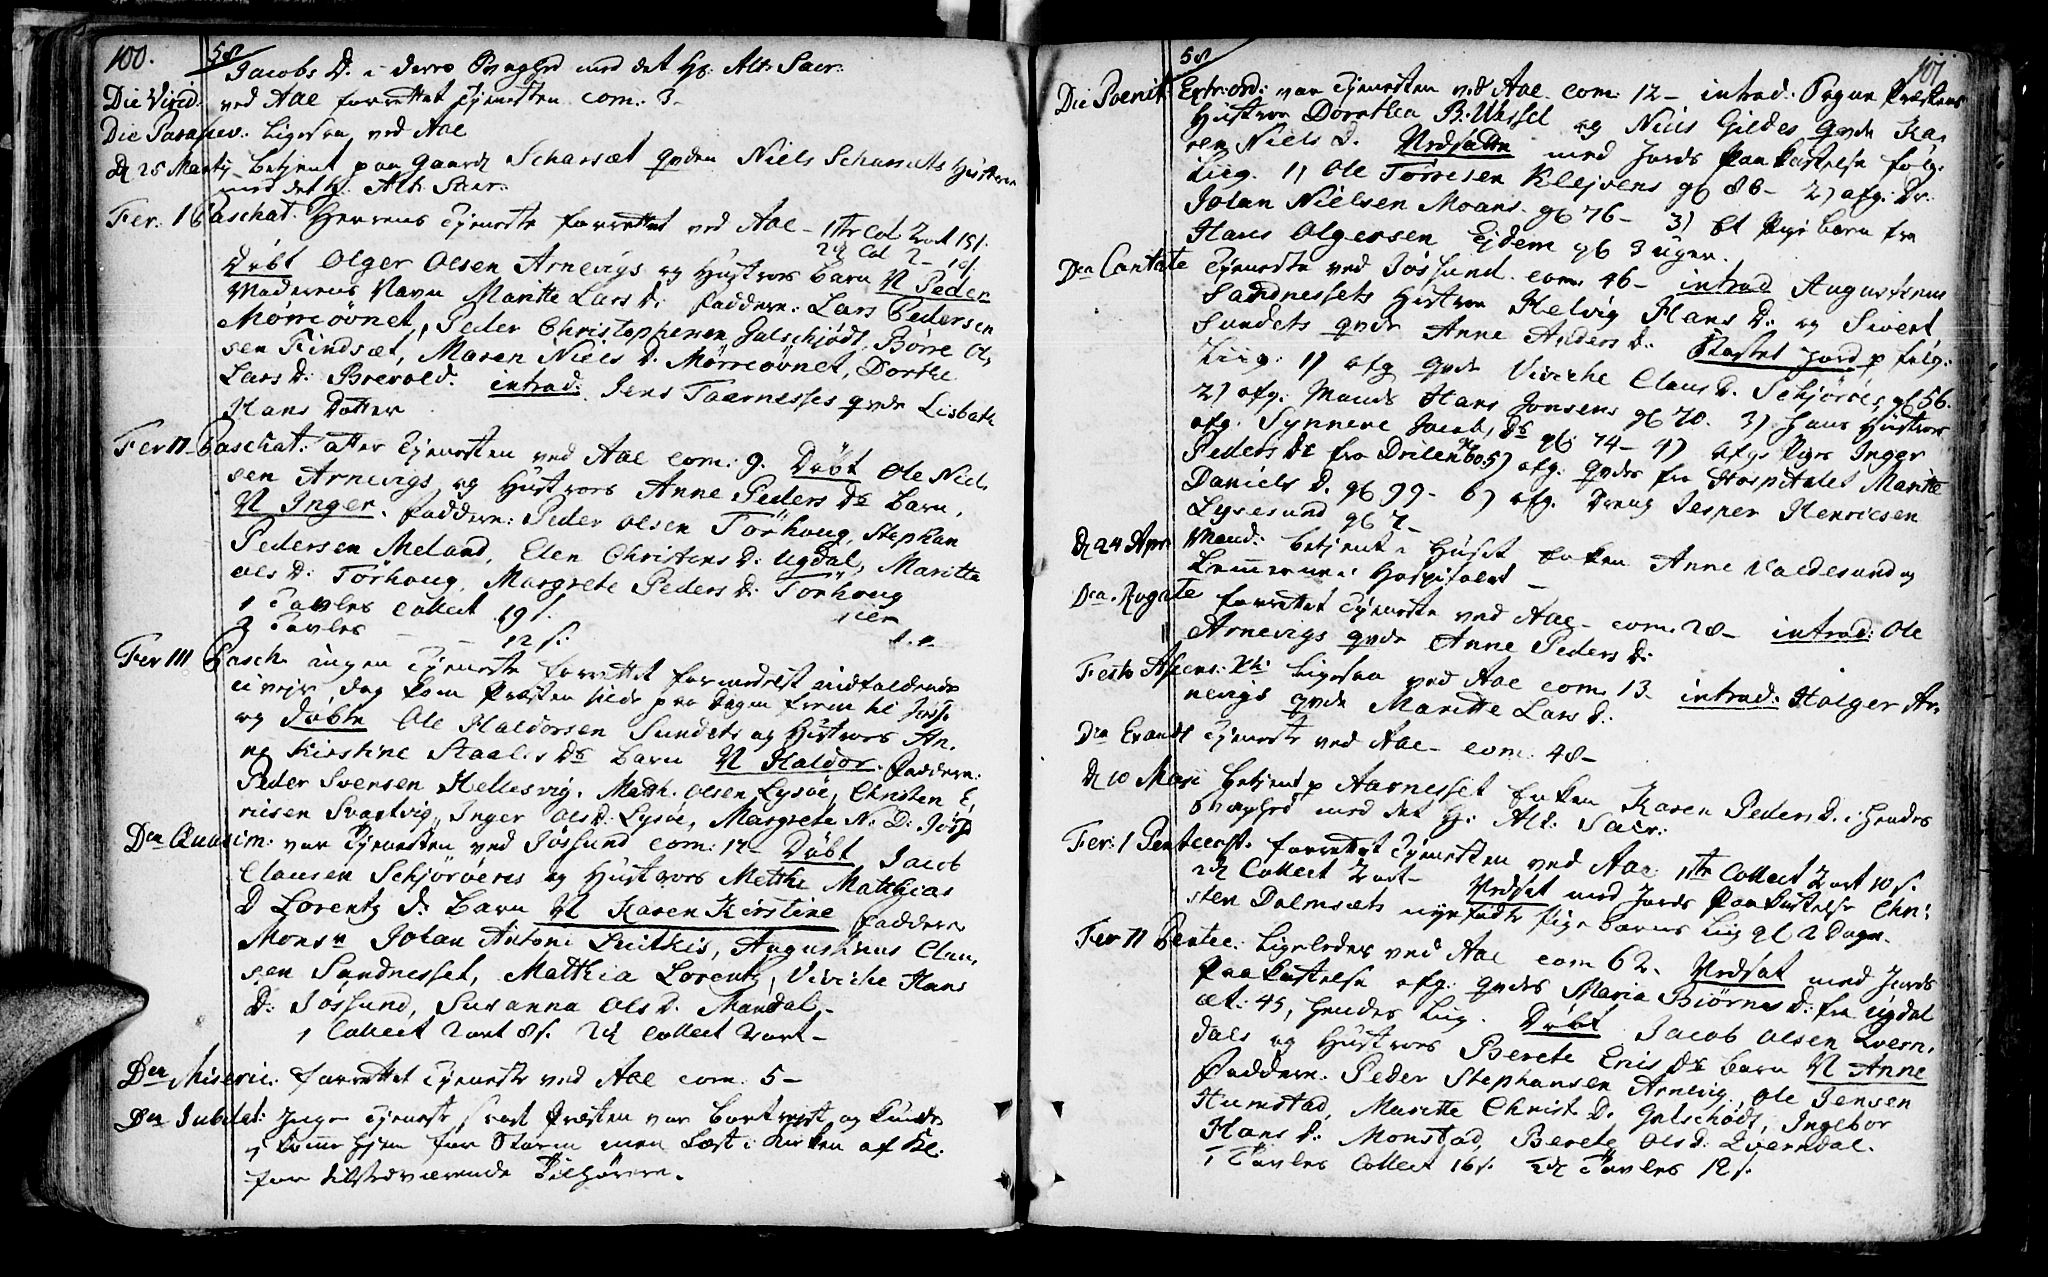 100.
58
Jacobs D. i deres Svaghed med det H. Alt: Sacr:
Die Virid. ved Aae forrettet Tjenesten com: 3.
Die Parascev. Ligesaa ved Aae
D 25 Martij betjent paa Gaarden Scharsæt qvden Niels Schursetts Hustrue
med det H. Alt: Sacr:
Fer: 1 Paschat. Herrens Tjeneste forrettet ved Aae - 1ste Col: 2 ort 15 s.
2d Col 2 - 18 s.
Døbt Olger Olsen Arnevigs og Hustroes barn N Peder
Moderens Navn Maritte Lars D: Faddere: Lars Pedersen
Mørreøvnet, Peder Christophersen Julschjødt, Børre Ol-
sen Findsæt, Maren Niels D: Mørreøvnet, Dorthe
Lars D: Brevold. introd: Jens Taarnesses qvde Lisbath
Hans Dotter
Fer II Paschat: atter Tjenesten ved Aae com: 9. Døbt Ole Niel-
sen Arnevigs og Hustroes Anne Peders Ds Barn.
N Inger. Faddere: Peder Olsen Törhoug, Stephan
Pedersen Meland, Elen Christens D: Ugdal, Maritte
Ols D: Törhoug, Margrete Peders D: Törhoug
1 Tavles Collect 19 s.
2 Tavles - - 12 s.
Fer III Pasch. ingen Tjeneste forrettet formedelst indfaldende
uvejr, dog kom Præsten silde paa Dagen frem til Jøss.
og døbte Ole Haldorsen Sundets og Hustroes An-
ne Kirstine Staals Ds Barn N Haldor. Faddere:
Peder Svensen Hellesvig, Matth. Olsen Lysöe, Christen E-
ricsen Svartvig, Inger Ols D: Lysöe, Margrete N: D: Jöss
Dca Quasim: var Tjenesten ved Jössund com: 12 - Døbt Jacob
Clausen Schjöröeres og Hustroes Metthe Matthias
D Lorentz D: Barn N Karen Kirstine Faddere
Monsr Johan Antoni Luithis, Augustinus Clau-
sen Sandnesset, Matthia Lorentz, Viviche Hans
D: Jössund, Susanna Ols D. Mandal,
1 Collect 2 ort 8 s. 2d Collect 2 ort -
Dca Miseric: forrettet Tjeneste ved Aae com: 5 -
Dca Jubilat: Inge Tjeneste, thi Præsten var bortreist og kunde
ej komme hjem for Storm men Læst i Kirken af Kl:
for tilstedværende Tilhörere.
101
58
Die Poenit. Extr:ord: var Tjenesten ved Aae com: 12 - introd: Sogne Præstens
Hustroe Dorothea B: Wessel og Niels Gildes qvde Ka-
ren Niels D. Nedsatte med Jords Paakastelse følg:
Liig. 1) Ole Törresen Klejvens gl 86 - 2) afg: Dr:
Johan Nielsen Moans gl 76 - 3) Et Pige barn fra
Hans Olgersen Ejdem gl 3 uger.
Dca Cantate Tjeneste ved Jössund com: 46 - introd Augustinus
Sandnessets Hustroe Helvig Hans D: og Sivert
Sundets qvde Anne Anders D: Kastet Jord p følg:
Liig: 1) afg qvde Viviche Claus D. Schjöröe, gl 56.
2) afg: Mands Hans Jonsens gl 70. 3) Hans Hustroe
afg: Synnere Jacobs Ds gl: 74 - 4) afg: Piges Inger
Peders De fra Drilen gl 60. 5) afg: qvdes fra Hospitalet Maritte
Daniels D. gl 99 - 6) afg. Dreng Jesper Henricsen
Lysesund gl 7 -
D 24 Apr: Mand: betjent i Huset Enken Anne Valdesund og
Lemmerne i Hospitalet -
Dca. Rogate forrettet Tjeneste ved Aae - com. 28 - introd: Ole
Arnevigs qvde Anne Peders D:
Festo Ascens: Xti Ligesaa ved Aae com: 13. introd: Holger Ar-
nevigs qvde Maritte Lars D:
Dca Exaudi Tjeneste ved Aae - com: 48 -
D 10 Maji betjent p Aarnesset Enken Karen Peders D. i hendes
Svaghed med det H: Alt: Sacr:
Fer: 1 Pentecost. forrettet Tjenesten ved Aae 1ste Collect 2 ort 10 s.
2d Collect 2 ort - Nedsat med Jords Paakastelse Chri-
sten Dalmsæts nyefødte Pige barns Liig gl 2 Dage.
Fer II Pentec: Ligeledes ved Aae com 62. Nedsat med Jords
Paakastelse afg: qvdes Maria Biörns D: fra Ugdal
æt: 45, hendes Liig. Døbt Jacob Olsen Qvern-
dals og Hustroes Berete Erics Ds barn N Anne
Faddere: Peder Stephansen Arnevig, Ole Jensen
Humstad, Maritte Christ: D: Julschödt, Ingebor
Hans D: Monstad, Berete Ols D: Qverndal.
1 Tavles Collect 16 s. 2d Tavles 12 s.